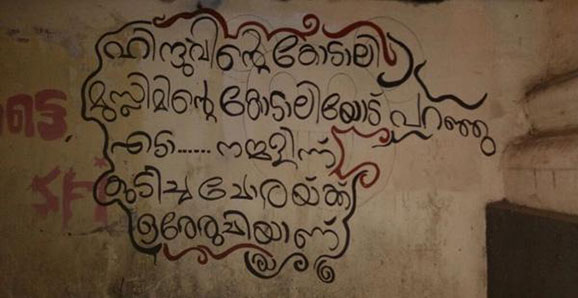 ഹിന്ദുവിന്റെ കോടാലി
മുസ്ലിമിന്റെ കോടാലിയോട് പറഞ്ഞു
എടാ...... നമ്മളിന്ന്
കുടിച്ച ചോരയ്ക്ക്
ഒരേരുചിയാണ്
SFI